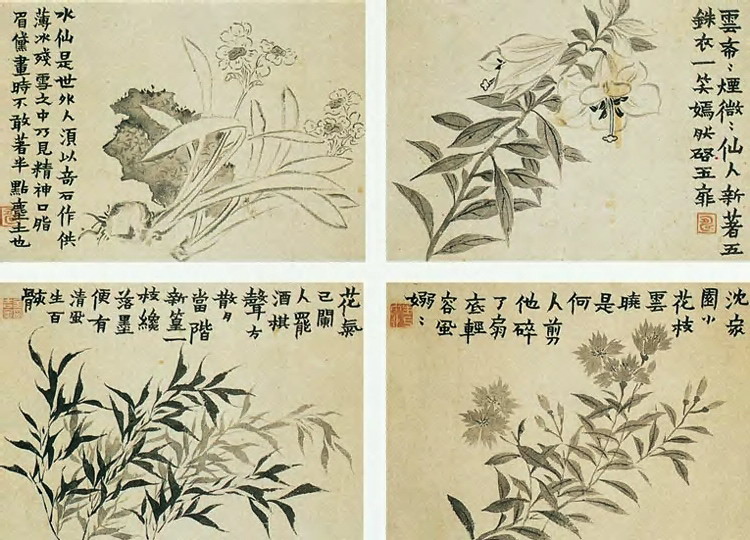 水仙是世外人須以奇石作供
薄冰殘雪之中乃見精神口脂
眉黛畫時不敢著半點塵土也
雲裔〻煙微〻仙人新著五
銖衣一笑嫣然啓玉扉
花氣
已闌
人罷
酒棋
聲方
散月
當階
新篁一
枝纔
落墨
便有
清風
生百
骸
沈家
園小
花枝
雲
曉
是
何
人剪
他碎
了扇
底輕
容風
嫋〻